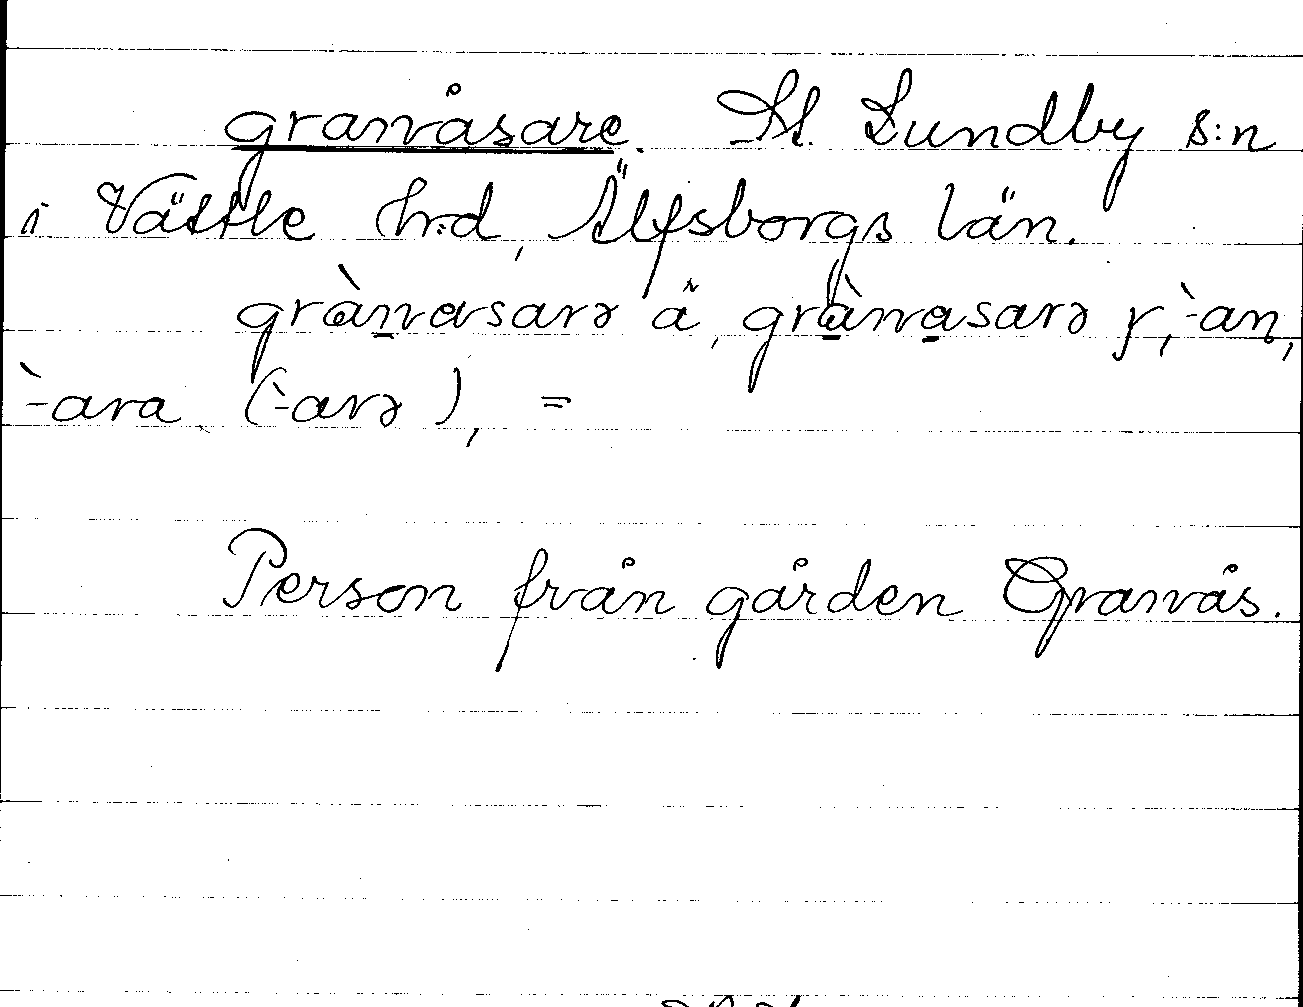 granåsare. St. Lundby s:n
i Vättle h:d, Älfsborgs län.
grànasarə ä, grànasarə y, -̀an,
-̀ara (-̀arə), =
Person från gården Granås.